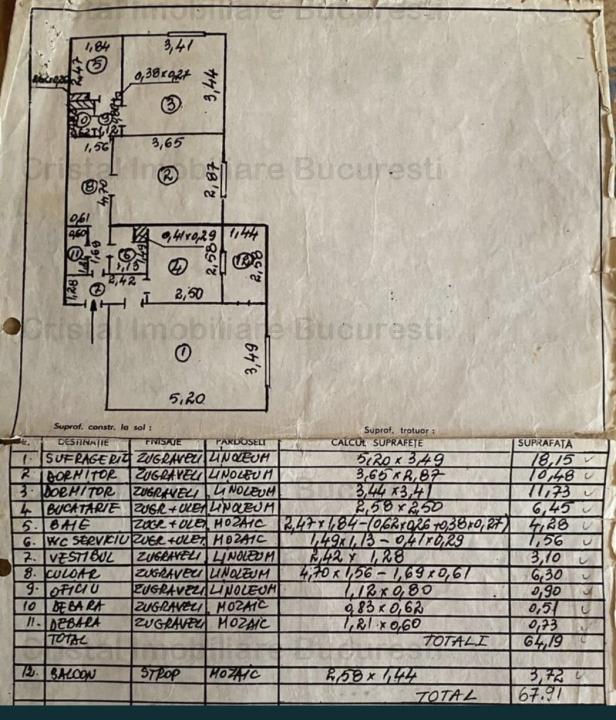 Cristal Imobiliare Bucuresti
1,84
3,41
5
2,47
0,38x0,27
3
3,44
1,56
3,65
Cristal Imobiliare Bucuresti
8
4,70
2
2,87
0,61
0,60
0,41x0,29
1,44
11
1,69
6
4
2,58
12
2,58
1,13
2,42
1,28
7
2,50
Cristal Imobiliare Bucuresti
1
3,49
5,20
Supraf. constr. la sol :
Supraf. trotuar :
DESTINAȚIE FINISAJE PARDOSELI CALCUL SUPRAFEȚE SUPRAFAȚA
1. SUFRAGERIE ZUGRAVELI LINOLEUM 5,20 x 3,49 18,15
2 DORMITOR ZUGRAVELI LINOLEUM 3,65 x 2,87 10,48
3. DORMITOR ZUGRAVELI LINOLEUM 3,44 x 3,41 11,73
4 BUCATARIE ZUGR+ULEI LINOLEUM 2,58 x 2,50 6,45
5. BAIE ZUGR+ULEI MOZAIC 2,47x1,84-(0,62x0,26+0,38x0,27) 4,28
6. WC SERVICIU ZUGR+ULEI MOZAIC 1,49x1,13-0,41x0,29 1,56
7. VESTIBUL ZUGRAVELI LINOLEUM 2,42 x 1,28 3,10
8. CULOAR ZUGRAVELI LINOLEUM 4,70 x 1,56 - 1,69 x 0,61 6,30
9. OFICIU ZUGRAVELI LINOLEUM 1,12 x 0,80 0,90
10 DEBARA ZUGRAVELI MOZAIC 0,83 x 0,62 0,51
11. DEBARA ZUGRAVELI MOZAIC 1,21 x 0,60 0,73
TOTAL TOTAL I 64,19
12. BALCON STROP MOZAIC 2,58 x 1,44 3,72
TOTAL 67.91